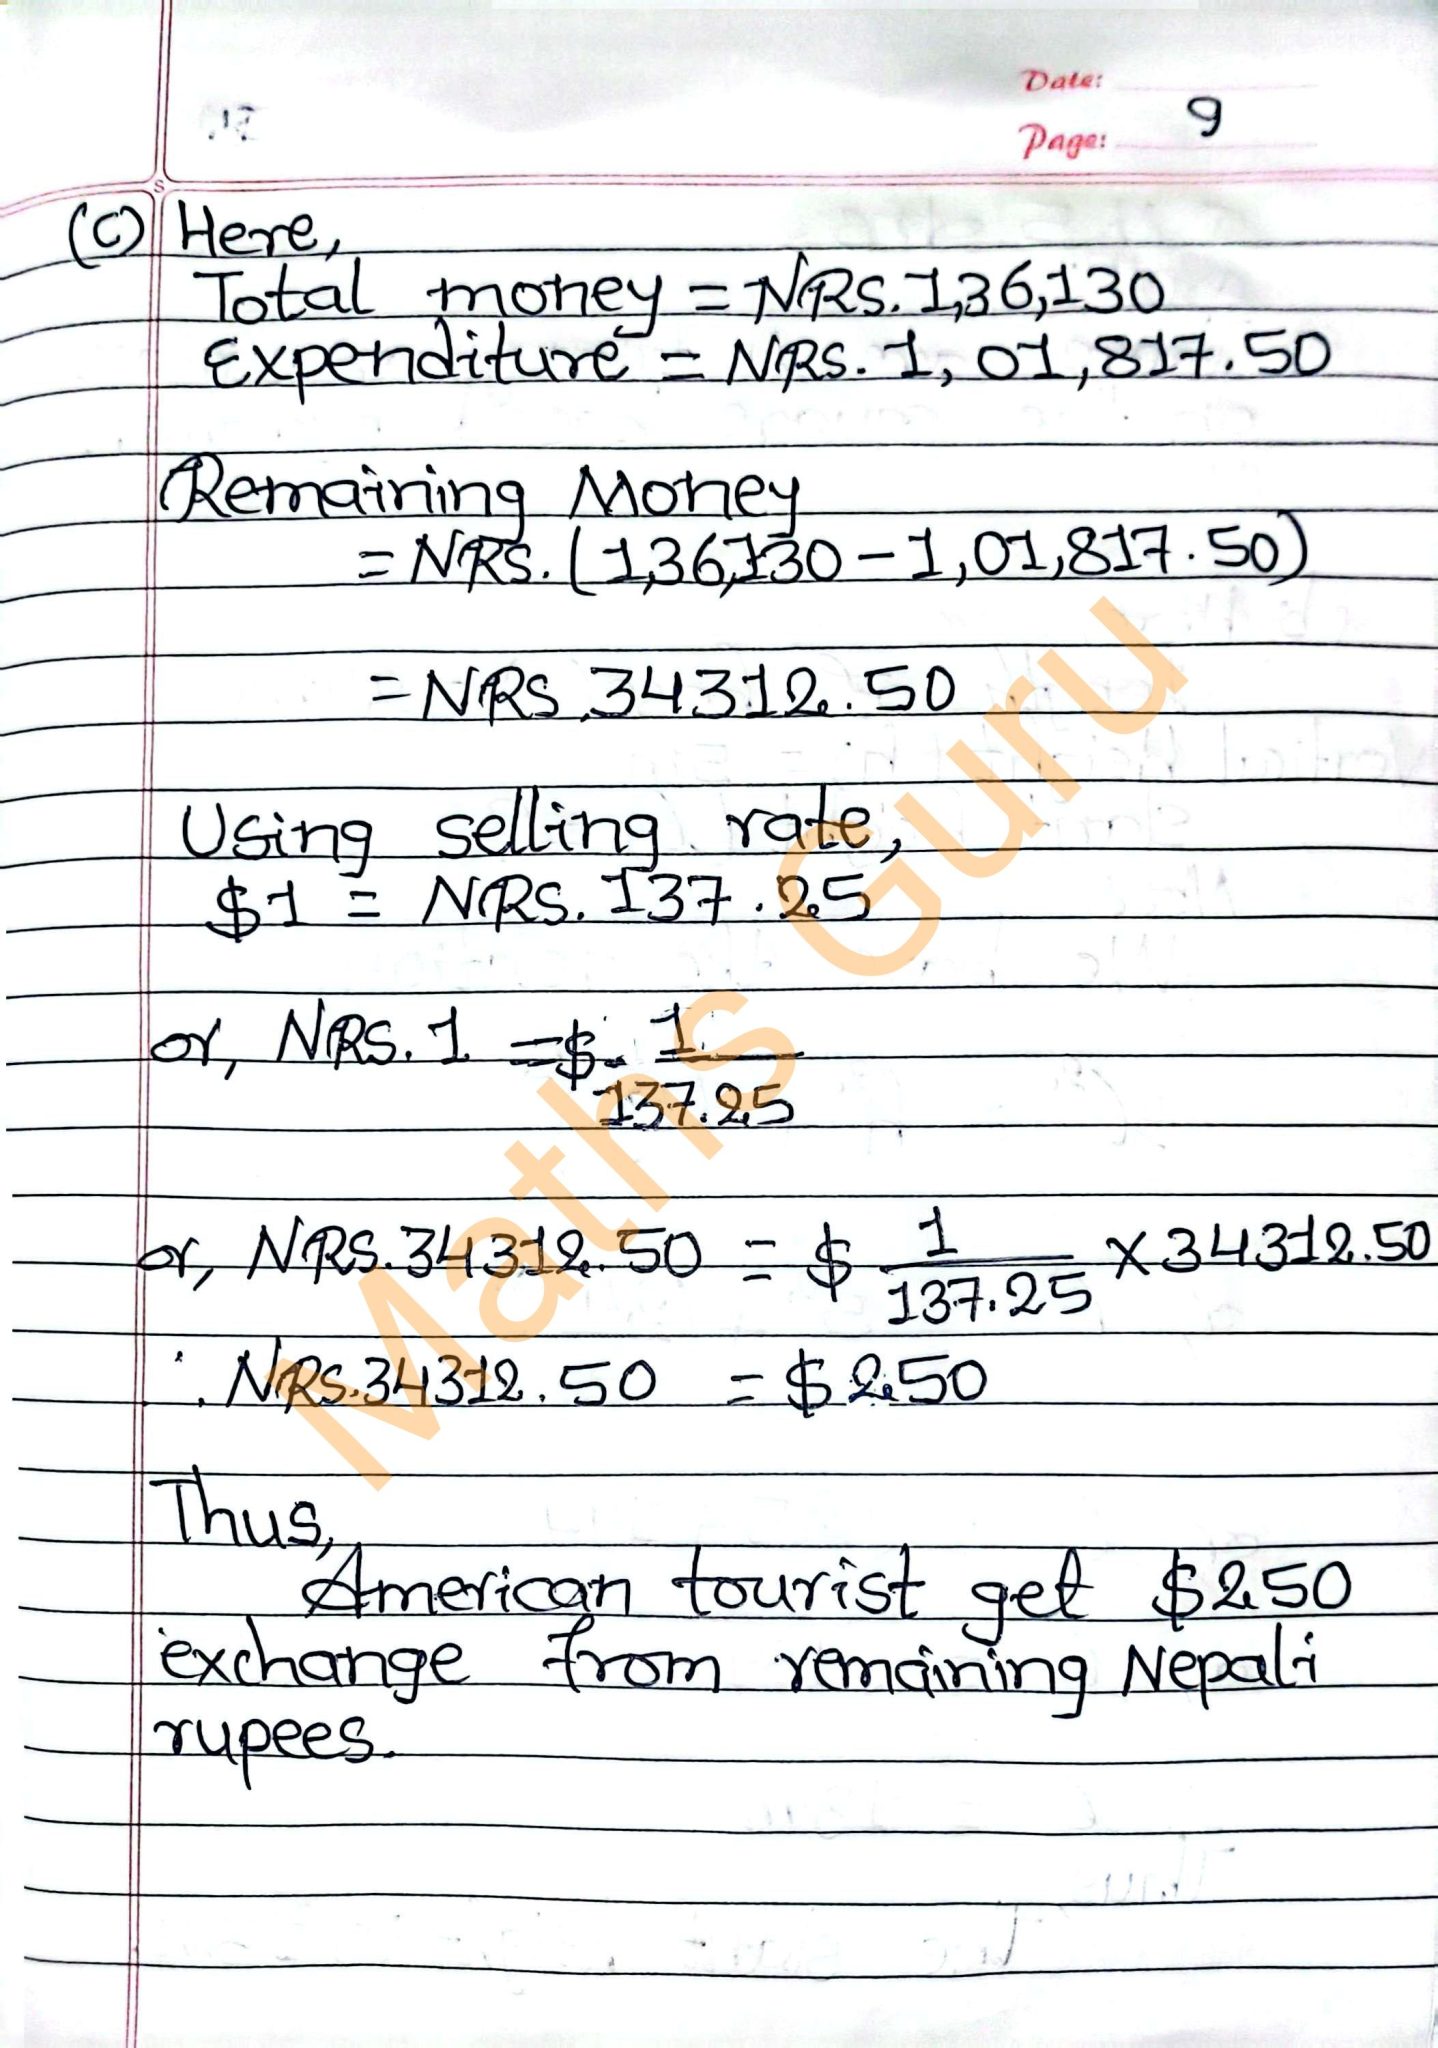 Date:
Page: 9
(c) Here,
Total money = NRS. 1,36,130
Expenditure = NRS. 1,01,817.50
Remaining Money
= NRS. (1,36,130 - 1,01,817.50)
= NRS. 34312.50
Using selling rate,
$1 = NRS. 137.25
or, NRS. 1 = $ 1/137.25
or, NRS. 34312.50 = $ 1/137.25 × 34312.50
∴ NRS. 34312.50 = $250
Thus,
American tourist get $250
exchange from remaining Nepali
rupees.
Maths Guru